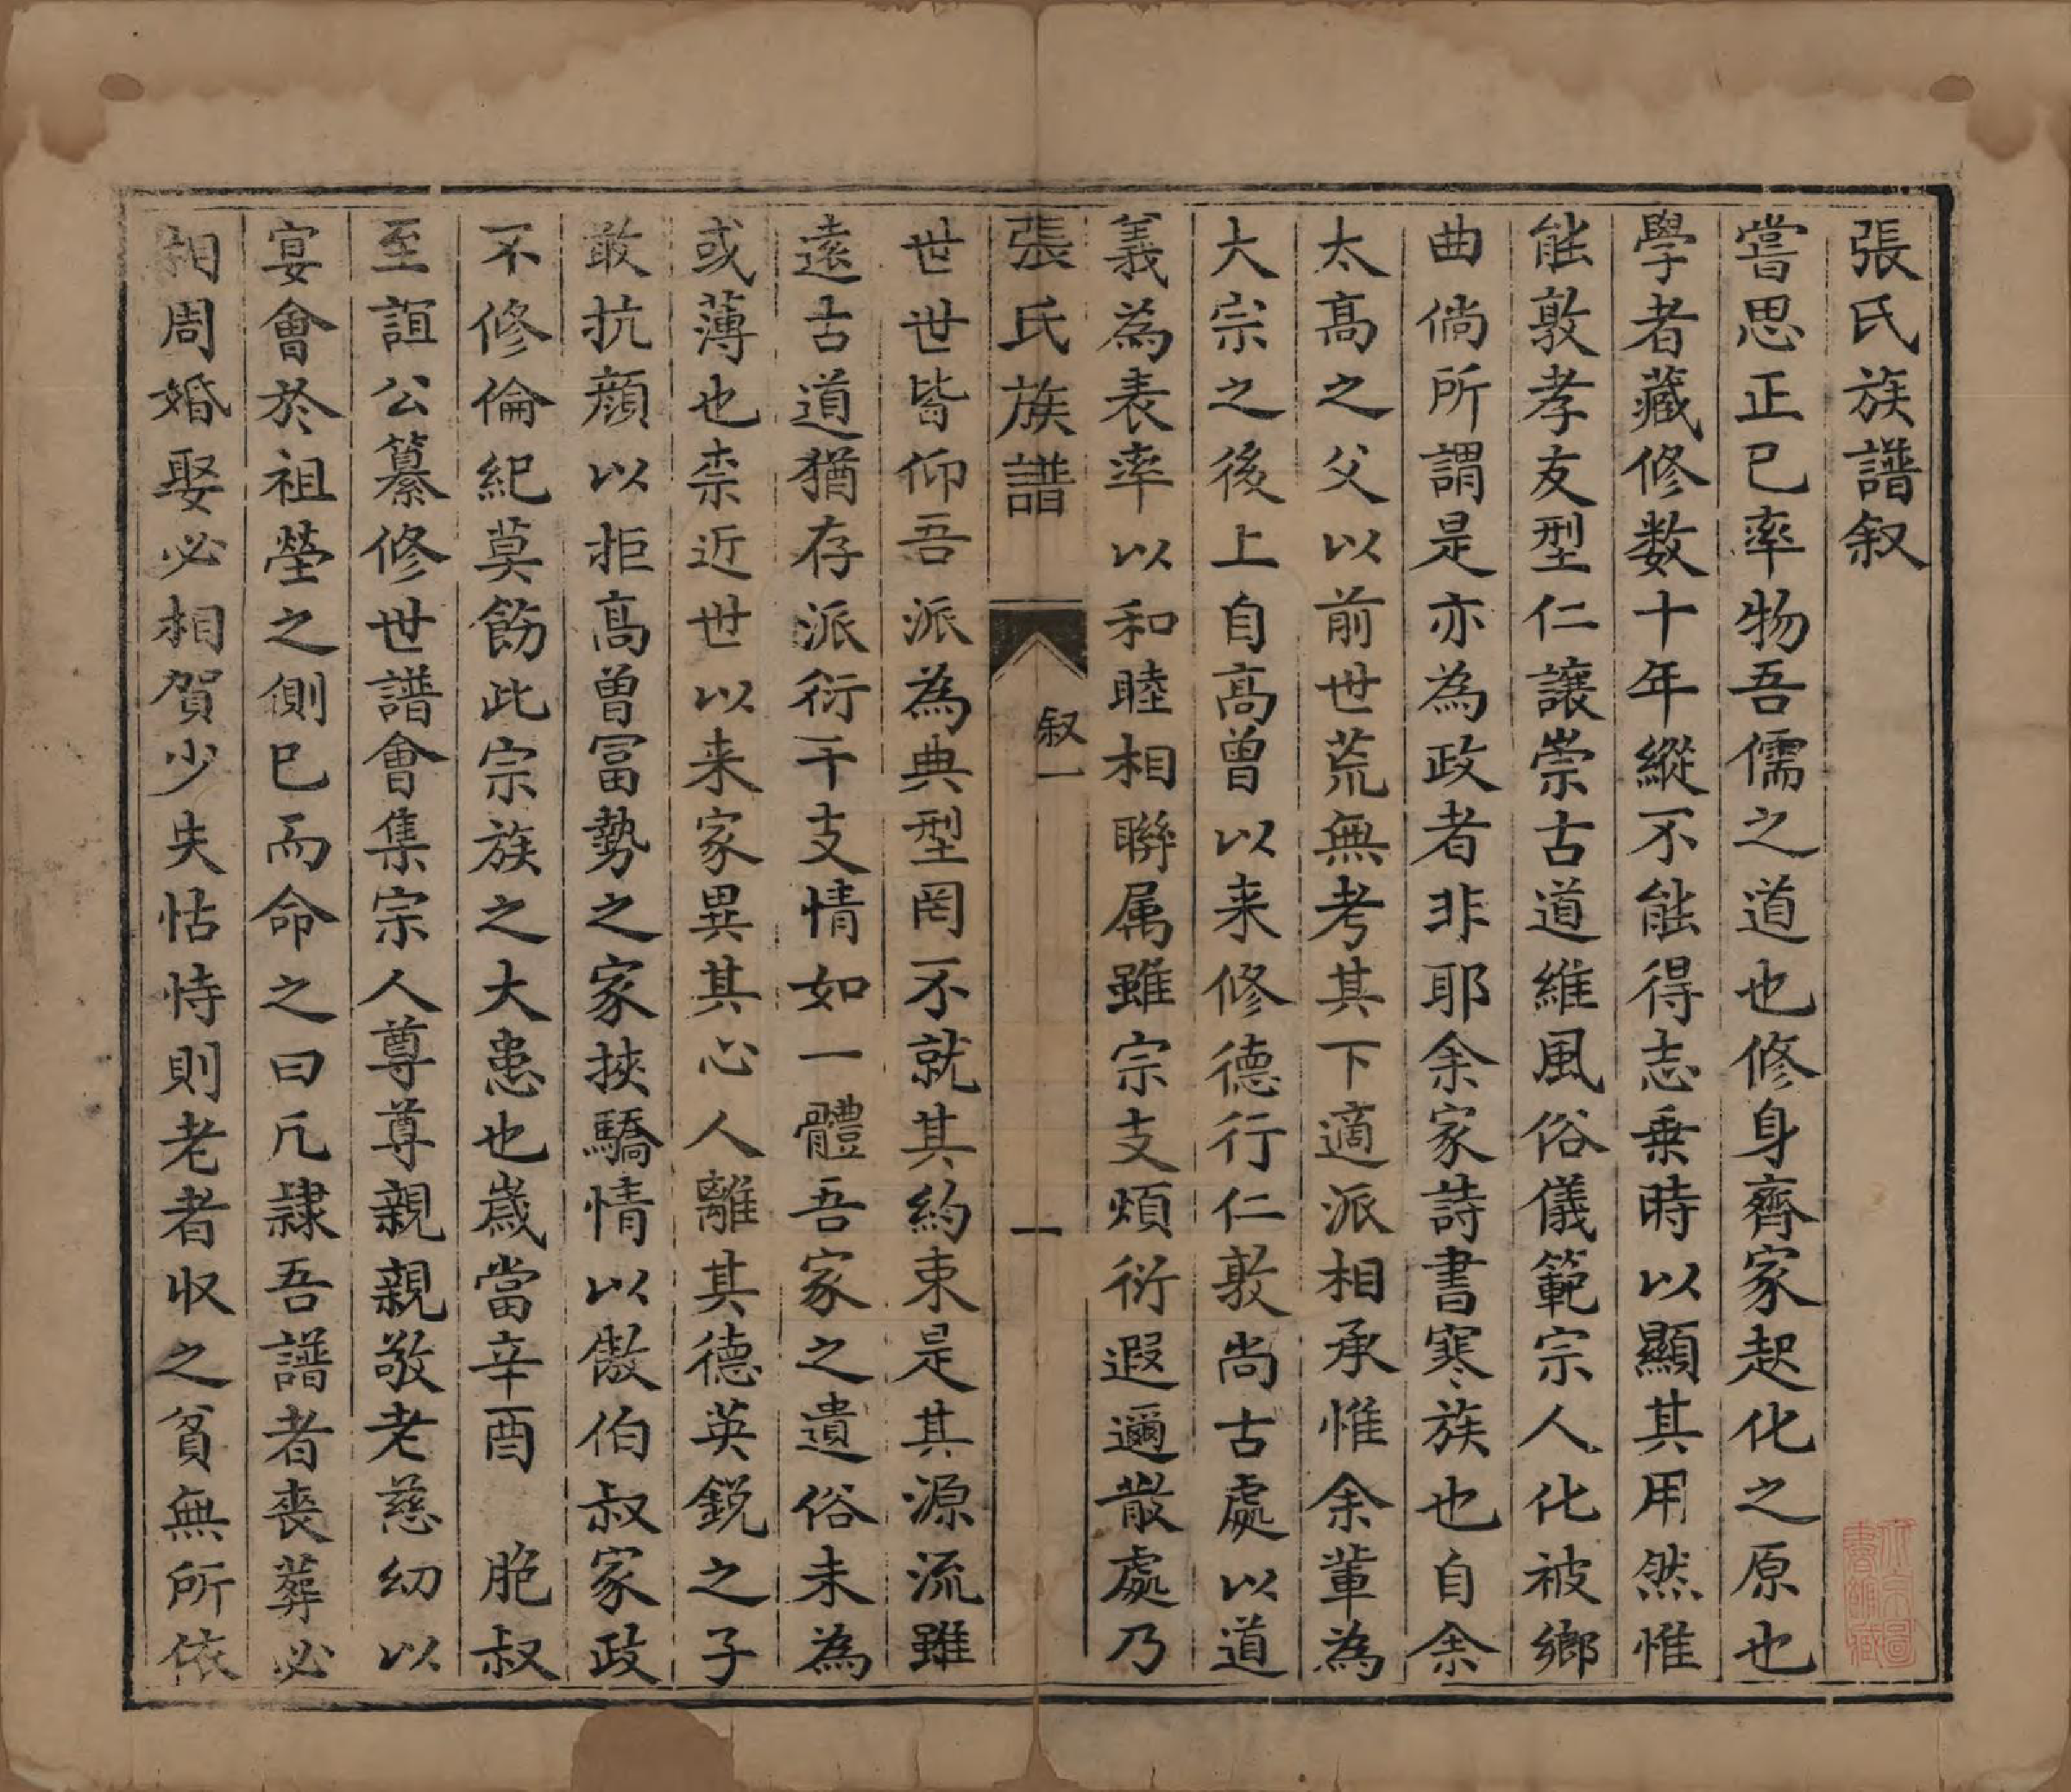 張氏族譜叙
嘗思正已率物吾儒之道也修身齊家起化之原也
學者藏修数十年縱不能得志乗時以顯其用然惟
能敦孝友型仁讓崇古道維風俗儀範宗人化被鄉
曲倘所謂是亦為政者非耶余家詩書寒族也自余
太髙之父以前世荒無考其下適派相承惟余輩為
大宗之後上自髙曾以来修德行仁敦尚古處以道
義為表率以和睦相聨属雖宗支煩衍遐邇散處乃
張氏族譜
叙一
一
世世皆仰吾派為典型罔不就其約束是其源流雖
遠古道猶存派衍千支情如一體吾家之遺俗未為
或薄也柰近世以来家異其心人離其德英銳之子
敢抗顏以拒髙曾冨勢之家挾驕情以傲伯叔家政
不修倫紀莫飭此宗族之大患也歲當辛酉 胞叔
至誼公纂修世譜會集宗人尊尊親親敬老慈幼以
宴會於祖塋之側已而命之曰凢隷吾譜者喪葬必
相周婚娶必相賀少失怙恃則老者収之貧無所依